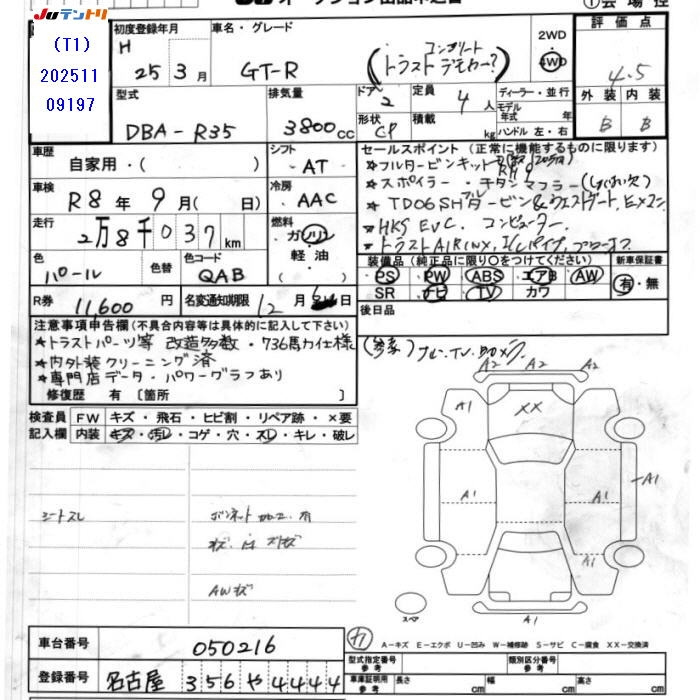 JUテントリ
(T1)
202511
09197
①会場控
初度登録年月
H 25 3月
車名・グレード
GT-R
(コンプリート
トラスト デモカー?)
2WD
4WD
評価点
4.5
外装 内装
B B
型式
DBA-R35
排気量
3800cc
ドア
2
形状
CP
定員
4人
積載
kg
ディーラー・並行
モデル年式 年
ハンドル 左・右
車歴
自家用・( )
シフト
AT
車検
R8年9月( 日)
冷房
AAC
走行
2万8千037km
燃料
ガソリン
軽油
( )
色
パール
色替
色コード
QAB
R券
11,600円
名変通知期限
12月 日
セールスポイント (正常に機能するものに限ります)
*フルタービンキット
*スポイラー・チタンマフラー
*TD06SHタービン&ウエストゲート, Eマニ
*HKS EVC. コンピューター
*トラスト AIRINX, I/Cパイプ,
装備品 (純正品に限り○をつけてください)
新車保証書
PS PW ABS エアB AW
SR ナビ TV カワ
有・無
後日品
注意事項申告欄(不具合内容等は具体的に記入して下さい)
*トラストパーツ等 改造多数・736馬力仕様
*内外装クリーニング済
*専門店データ・パワーグラフあり
修復歴 有 [箇所 ]
検査員記入欄
FW キズ・飛石・ヒビ割・リペア跡・×要
内装 キズ・汚レ・コゲ・穴・スレ・キレ・破レ
シートスレ
ボンネット加工有
AWキズ
A2 A2 A2
A1 XX
A1
A1 A1
A1
A1
スペア
車台番号
050216
登録番号
名古屋 356 や 4444
A-キズ E-エクボ U-凹み W-補修跡 S-サビ C-腐食 XX-交換済
型式指定番号
参考
類別区分番号
参考
車庫証明用
参考
長さ cm 幅 cm 高さ cm